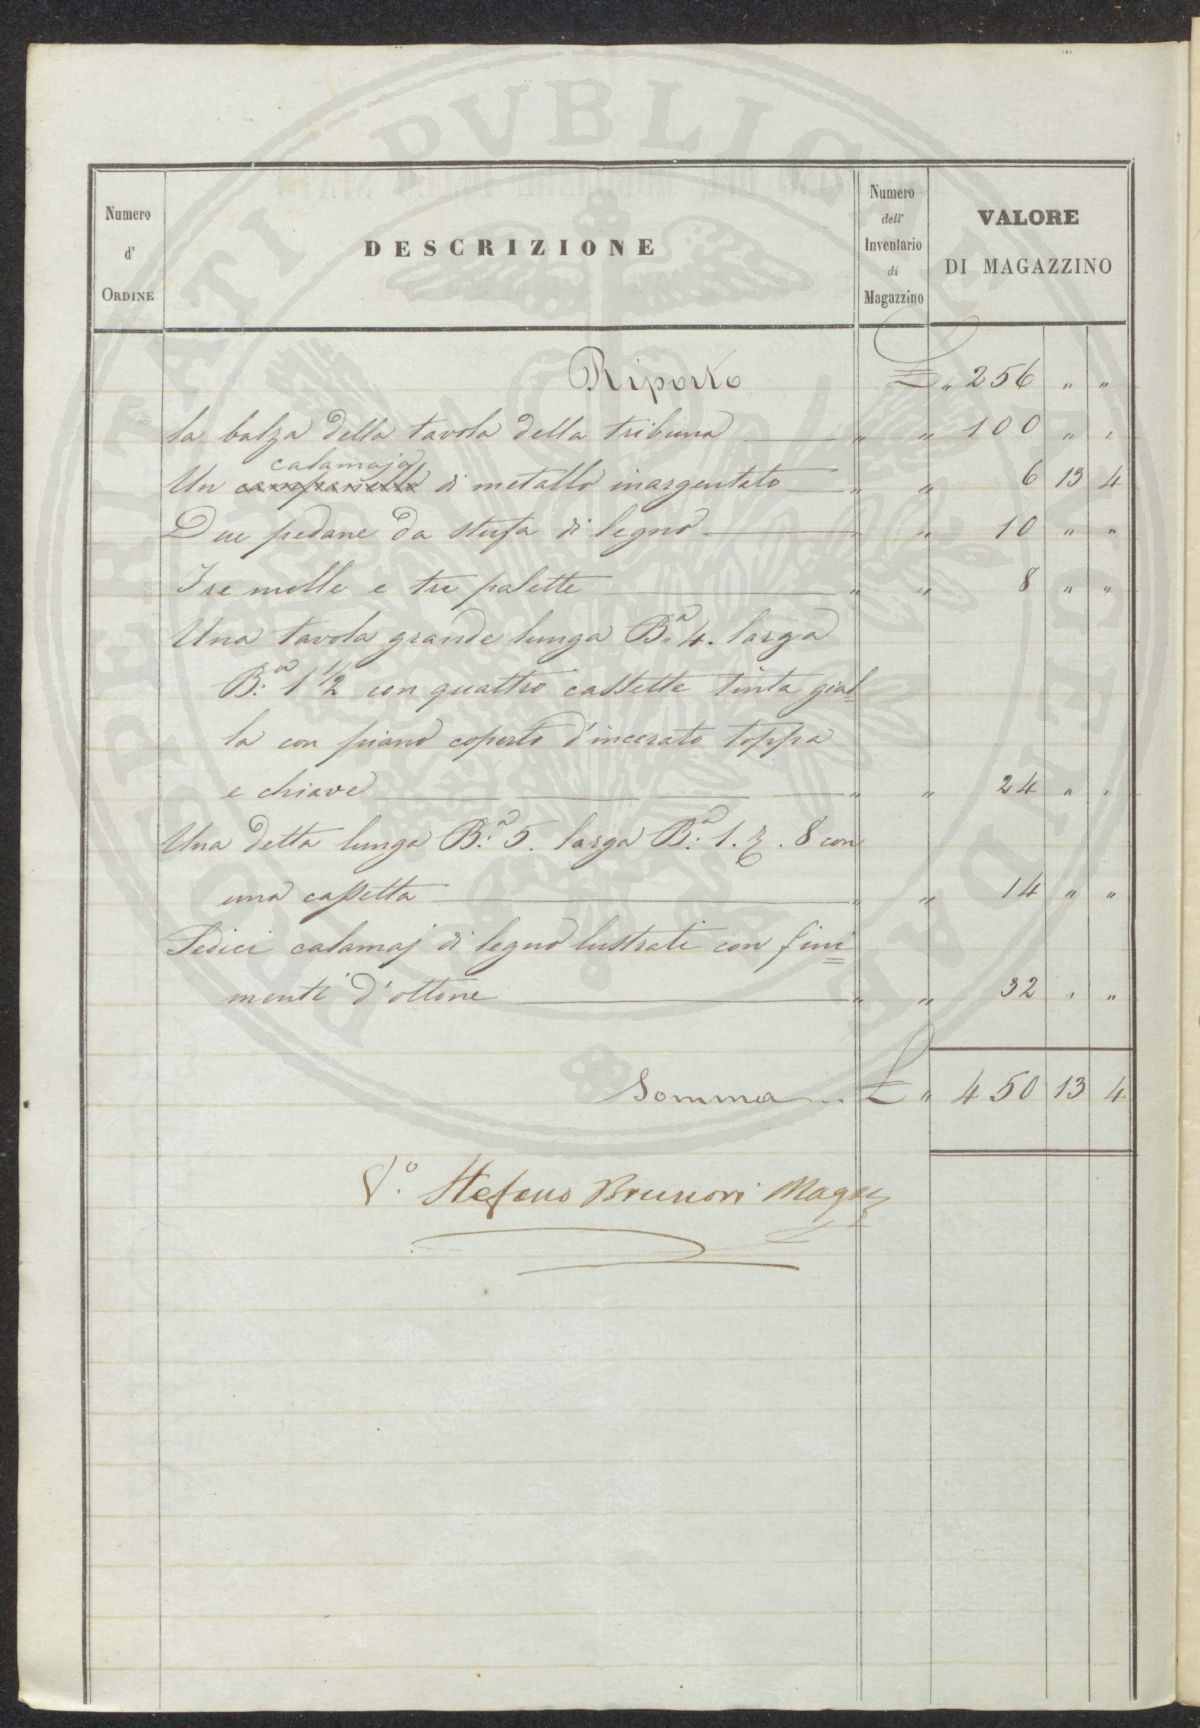 Numero d' ORDINE
DESCRIZIONE
Numero dell' Inventario di Magazzino
VALORE DI MAGAZZINO
Riporto £ „ 256 „ „
la balza della tavola della tribuna „ „ 100 „ „
calamajo
Un campanello di metallo inargentato „ „ 6 13 4
Due pedane da stufa di legno „ „ 10 „ „
Tre molle e tre palette „ „ 8 „ „
Una tavola grande lunga B.a 4. larga
B.a 1 1/2 con quattro cassette tinta gial=
la con piano coperto d'incerato toppa
e chiave „ „ 24 „ „
Una detta lunga B.a 5. larga B.a 1. . 8 con
una cassetta „ „ 14 „ „
Sedici calamaj di legno lustrati con fini=
menti d'ottone „ „ 32 „ „
Somma .. £ „ 450 13 4
V.o Stefano Brunori Magaz
PROSPERITATI PVBLICAE AVGENDAE